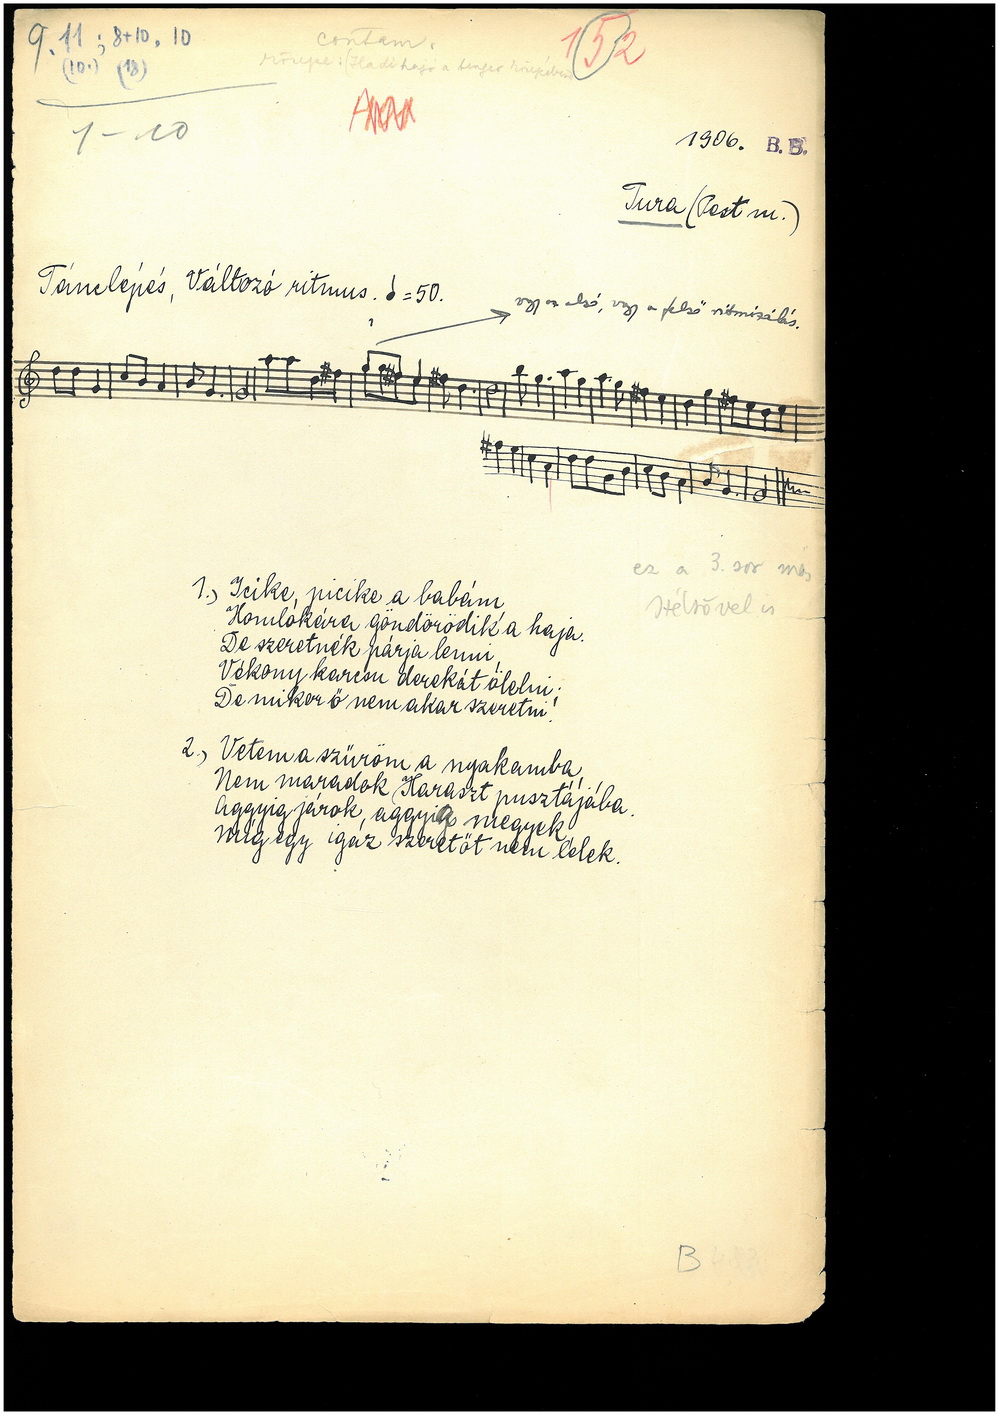 9. 11 ; 8+10, 10
(10.) (18)
1-10
contam.
152
1906. B. B.
Tura (Pest m.)
Tánclépés, Változó ritmus. = 50.
vagy az alsó, vagy a felső ritmizálás.
?
ez a 3. sor más
1., Icike, picike a babám,
Homlokára göndörödik a haja.
De szeretnék párja lenni,
Vékony karcsu derekát ölelni;
De mikor ő nem akar szeretni!
2., Vetem a szüröm a nyakamba,
Nem maradok Haraszt pusztájába.
Aggyig járok, aggyig megyek
Míg egy igaz szeretőt nem lelek.
B